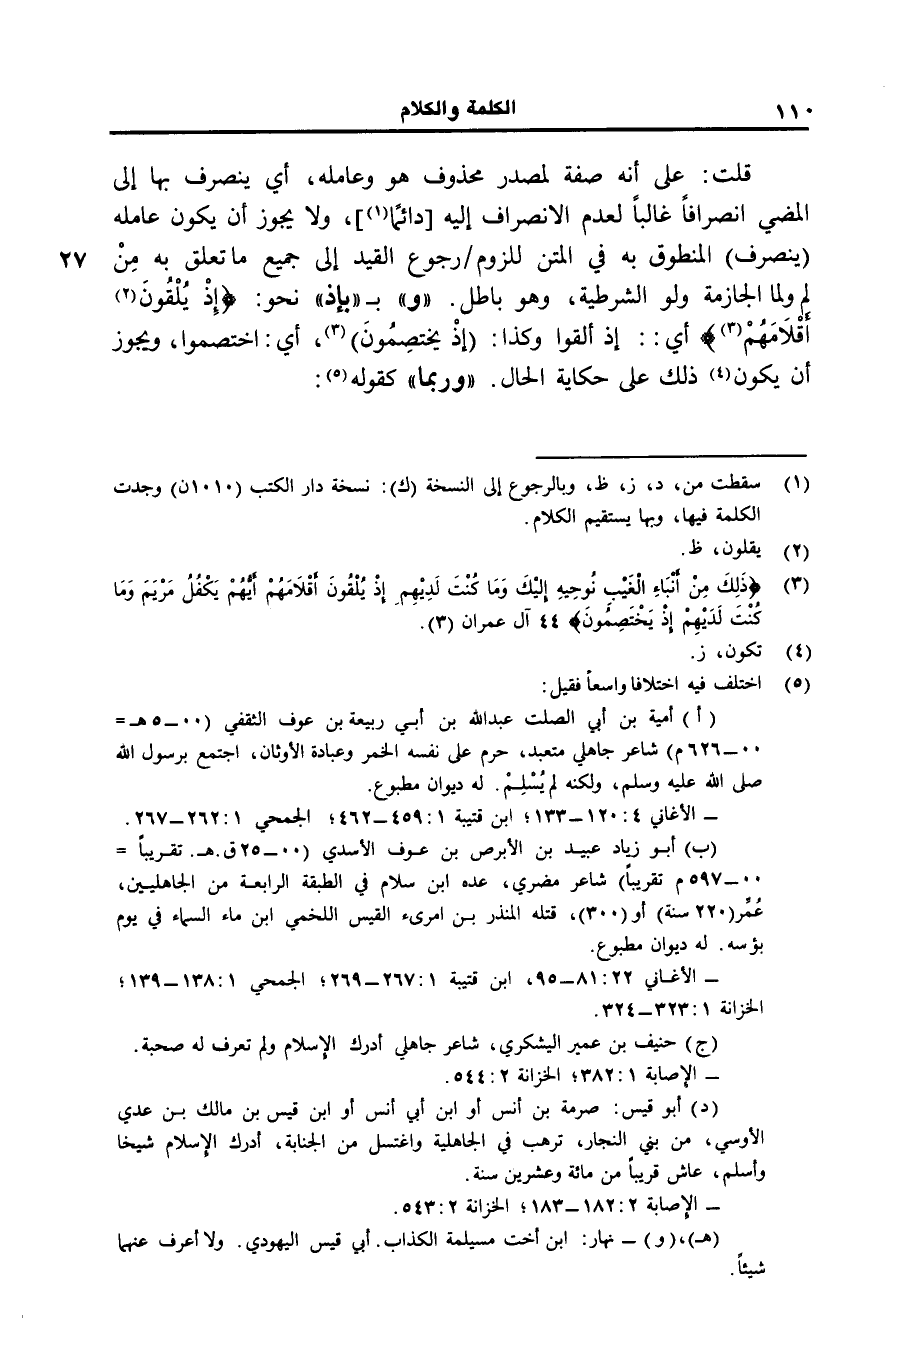 ١١٠ الكلمة والكلام
قلت: على أنه صفة لمصدر محذوف هو وعامله، أي ينصرف بها إلى
المضي انصرافاً غالباً لعدم الانصراف إليه [دائمًا(١)]، ولا يجوز أن يكون عامله
(ينصرف) المنطوق به في المتن للزوم/رجوع القيد إلى جميع ما تعلق به مِنْ ٢٧
لم ولما الجازمة ولو الشرطية، وهو باطل. «و» بـ«بإذ» نحو: ﴿إِذْ يُلْقُونَ(٢)
أَقْلَامَهُمْ(٣)﴾ أي:: إذ ألقوا وكذا: (إذْ يختصِمُونَ)(٣)، أي: اختصموا، ويجوز
أن يكون(٤) ذلك على حكاية الحال. «وربما» كقوله(٥):
(١) سقطت من، د، ز، ظ، وبالرجوع إلى النسخة (ك): نسخة دار الكتب (١٠١٠ن) وجدت
الكلمة فيها، وبها يستقيم الكلام.
(٢) يقلون، ظ.
(٣) ﴿ذَلِكَ مِنْ أَنْبَاءِ الْغَيْبِ نُوحِيهِ إِلَيْكَ وَمَا كُنْتَ لَدَيْهِمْ إِذْ يُلْقُونَ أَقْلَامَهُمْ أَيُّهُمْ يَكْفُلُ مَرْيَمَ وَمَا
كُنْتَ لَدَيْهِمْ إِذْ يَخْتَصِمُونَ﴾ ٤٤ آل عمران (٣).
(٤) تكون، ز.
(٥) اختلف فيه اختلافا واسعاً فقيل:
(أ) أمية بن أبي الصلت عبدالله بن أبي ربيعة بن عوف الثقفي (٠٠–٥هـ =
٠٠–٦٢٦م) شاعر جاهلي متعبد، حرم على نفسه الخمر وعبادة الأوثان، اجتمع برسول الله
صلى الله عليه وسلم، ولكنه لم يُسْلِمْ. له ديوان مطبوع.
– الأغاني ٤: ١٢٠–١٣٣؛ ابن قتيبة ١: ٤٥٩–٤٦٢؛ الجمحي ١: ٢٦٢–٢٦٧.
(ب) أبو زياد عبيد بن الأبرص بن عوف الأسدي (٠٠–٢٥ق.هـ. تقريباً =
٠٠–٥٩٧م تقريباً) شاعر مضري، عده ابن سلام في الطبقة الرابعة من الجاهليين،
عُمِّر (٢٢٠ سنة) أو (٣٠٠)، قتله المنذر بن امرىء القيس اللخمي ابن ماء السماء في يوم
بؤسه. له ديوان مطبوع.
– الأغاني ٢٢: ٨١–٩٥، ابن قتيبة ١: ٢٦٧–٢٦٩؛ الجمحي ١: ١٣٨–١٣٩؛
الخزانة ١: ٣٢٣–٣٢٤.
(ج) حنيف بن عمير اليشكري، شاعر جاهلي أدرك الإسلام ولم تعرف له صحبة.
– الإصابة ١: ٣٨٢؛ الخزانة ٢: ٥٤٤.
(د) أبو قيس: صرمة بن أنس أو ابن أبي أنس أو ابن قيس بن مالك بن عدي
الأوسي، من بني النجار، ترهب في الجاهلية واغتسل من الجنابة، أدرك الإسلام شيخا
وأسلم، عاش قريباً من مائة وعشرين سنة.
– الإصابة ٢: ١٨٢–١٨٣؛ الخزانة ٢: ٥٤٣.
(هـ)، (و) – نهار: ابن أخت مسيلمة الكذاب. أبي قيس اليهودي. ولا أعرف عنهما
شيئاً.